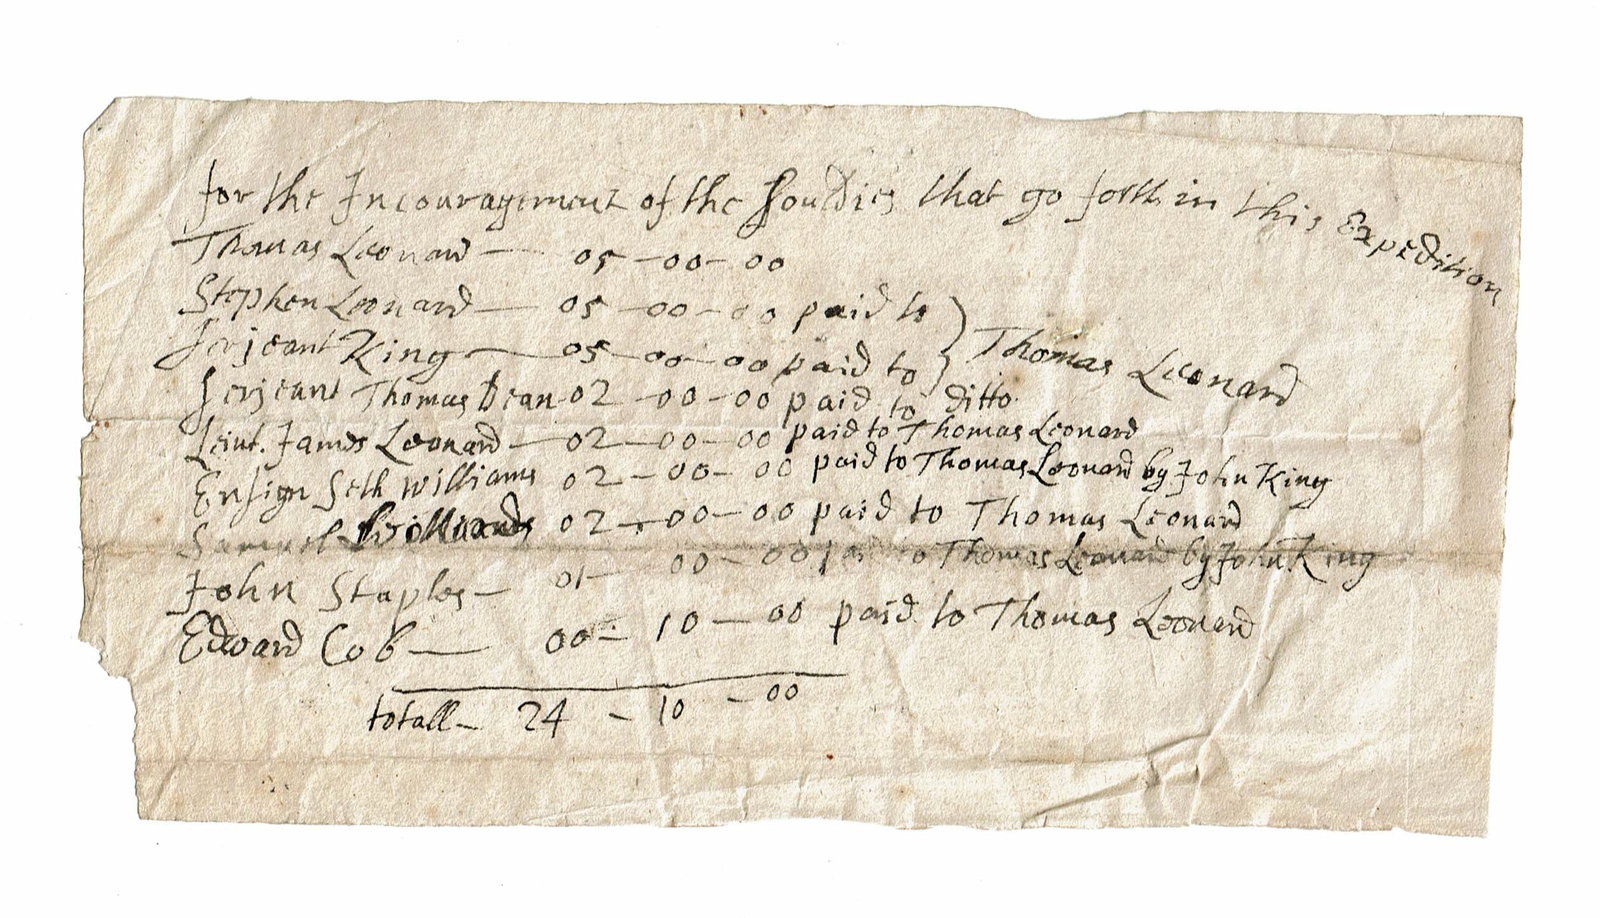 for the Incouragement of the Souldies that go forth in this Expedition
Thomas Leonard — 05 — 00 — 00
Stephen Leonard — 05 — 00 — 00 paid to } Thomas Leonard
Serjeant King — 05 — 00 — 00 paid to }
Serjeant Thomas Dean 02 — 00 — 00 paid to ditto
Leiut. James Leonard — 02 — 00 — 00 paid to Thomas Leonard
Ensign Seth Williams 02 — 00 — 00 paid to Thomas Leonard by John King
Samuel 02 — 00 — 00 paid to Thomas Leonard
John Staples — 01 — 00 — 00 Thomas Leonard by John King
Edward Cob — 00 — 10 — 00 paid to Thomas Leonard
totall — 24 — 10 — 00